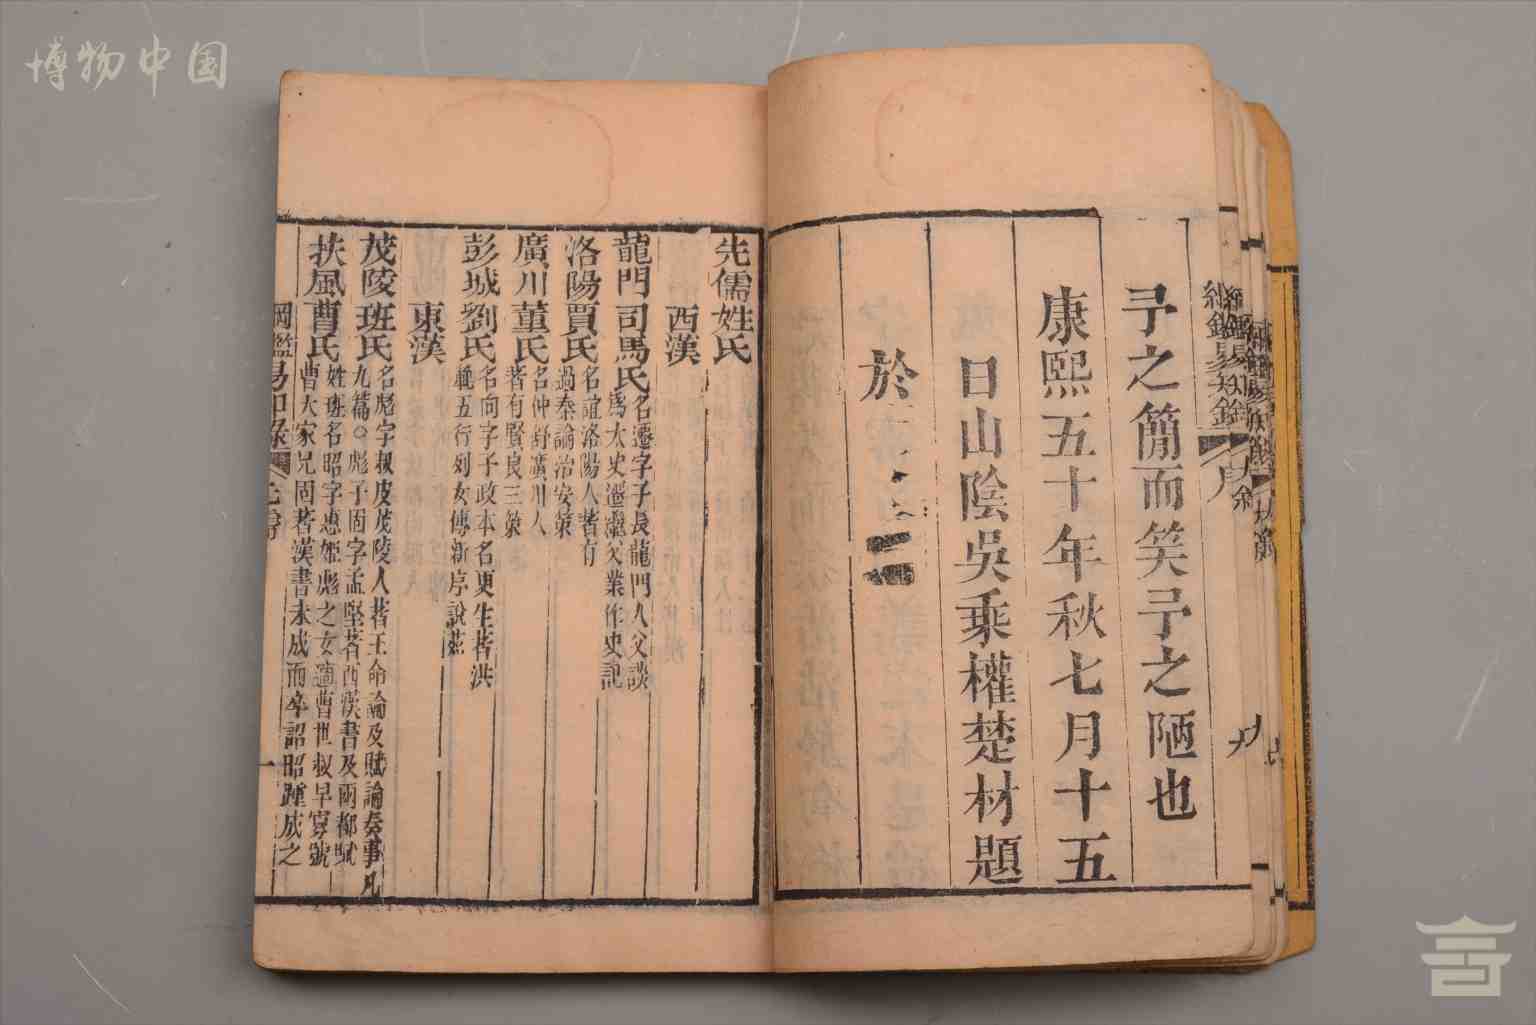 博物中国
予之簡而笑予之陋也
康熙五十年秋七月十五
日山陰吳乗權楚材題
於
先儒姓氏
西漢
龍門司馬氏名遷字子長龍門人父談
爲太史遷繼父業作史記
洛陽賈氏名誼洛陽人著有
過秦論治安策
廣川董氏名仲舒廣川人
著有賢良三策
彭城劉氏名向字子政本名更生著洪
範五行列女傳新序說苑
東漢
茂陵班氏名彪字叔皮茂陵人著王命論及賦論奏事凡
九篇○彪子固字孟堅著西漢書及兩都賦
扶風曹氏姓班名昭字惠姬彪之女適曹世叔早寡號
曹大家兄固著漢書未成而卒詔昭踵成之
綱鑑易知錄